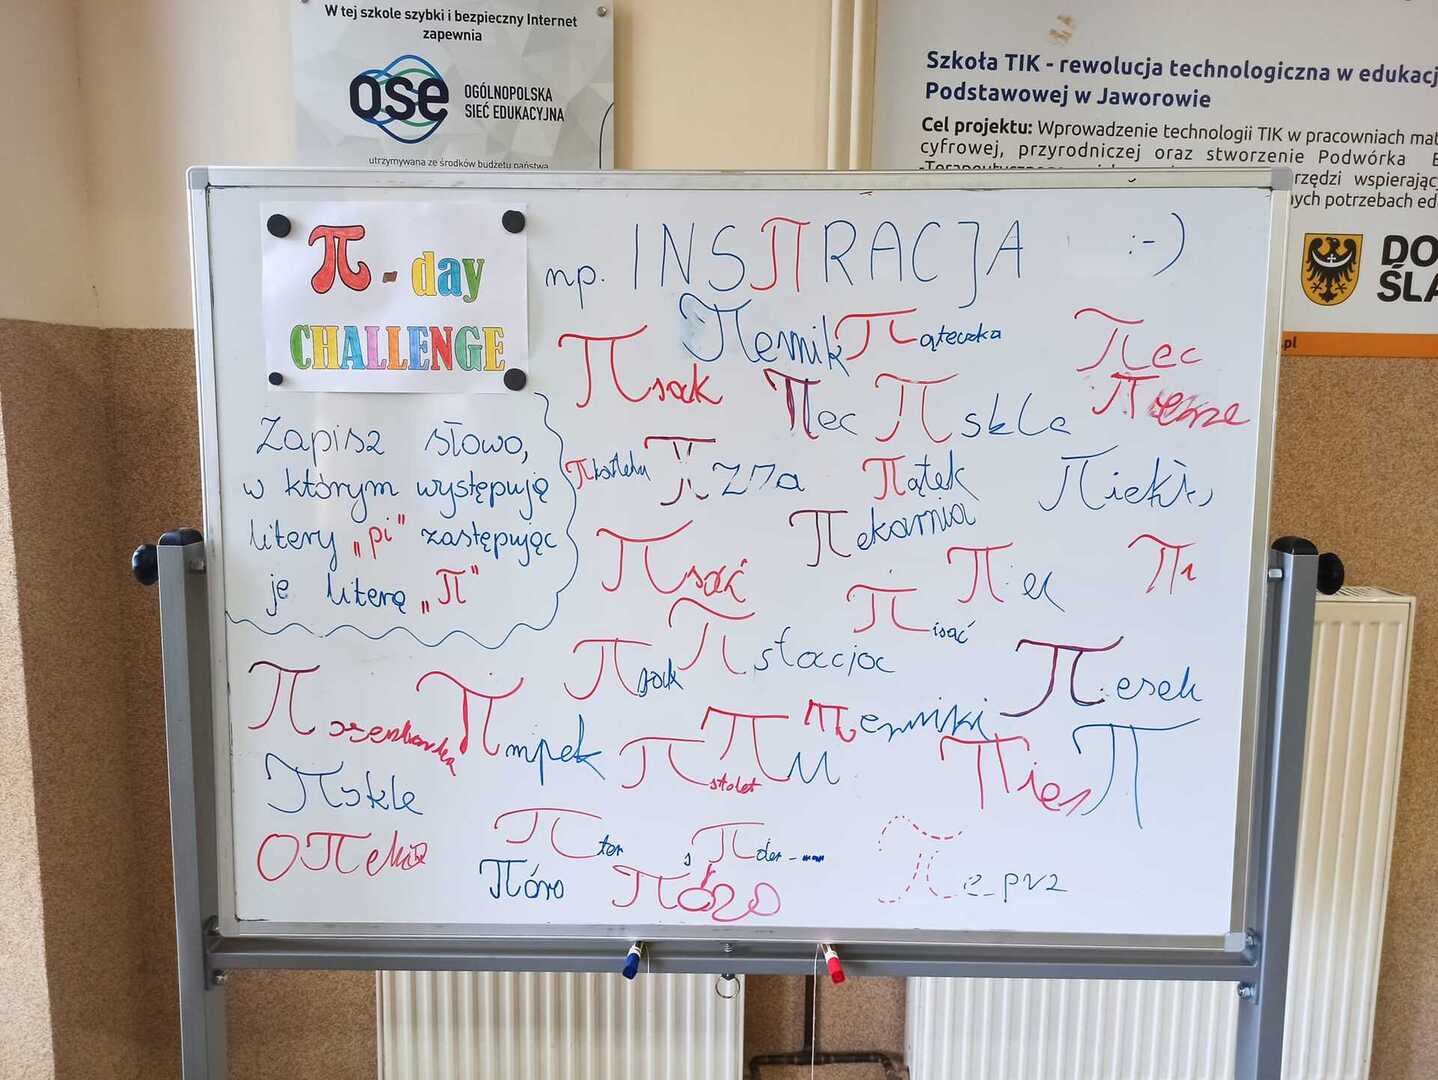 W tej szkole szybki i bezpieczny Internet
zapewnia
ose OGÓLNOPOLSKA
SIEĆ EDUKACYJNA
utrzymywana ze środków budżetu państwa
Szkoła TIK - rewolucja technologiczna w edukacj
Podstawowej w Jaworowie
Cel projektu: Wprowadzenie technologii TIK w pracowniach mat
cyfrowej, przyrodniczej oraz stworzenie Podwórka E
rzędzi wspierając
nych potrzebach ed
DO
ŚLĄ
.pl
π - day
CHALLENGE
np. INSπRACJA :-)
Zapisz słowo,
w którym występują
litery „pi" zastępując
je literą „π"
πernik πąteczka πec
πsak πec πskle
πzza πątek πiekł
πekarnia
πsać πec
πisać
πsak πstacjoc πesek
πmpek πstolet πu πerniki πies π
πskle
πter
πóro πóro
πe_pvz